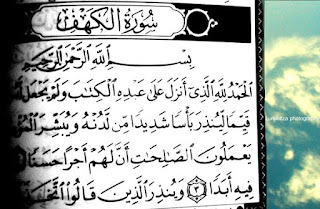 سُورَةُ الْكَهْفِ
بِسْمِ اللَّهِ الرَّحْمَٰنِ الرَّحِيمِ
الْحَمْدُ لِلَّهِ الَّذِي أَنزَلَ عَلَىٰ عَبْدِهِ الْكِتَابَ وَلَمْ يَجْعَل
قَيِّمًا لِّيُنذِرَ بَأْسًا شَدِيدًا مِّن لَّدُنْهُ وَيُبَشِّرَ
يَعْمَلُونَ الصَّالِحَاتِ أَنَّ لَهُمْ أَجْرًا حَسَنًا
فِيهِ أَبَدًا ٣ وَيُنذِرَ الَّذِينَ قَالُوا اتَّخَذَ